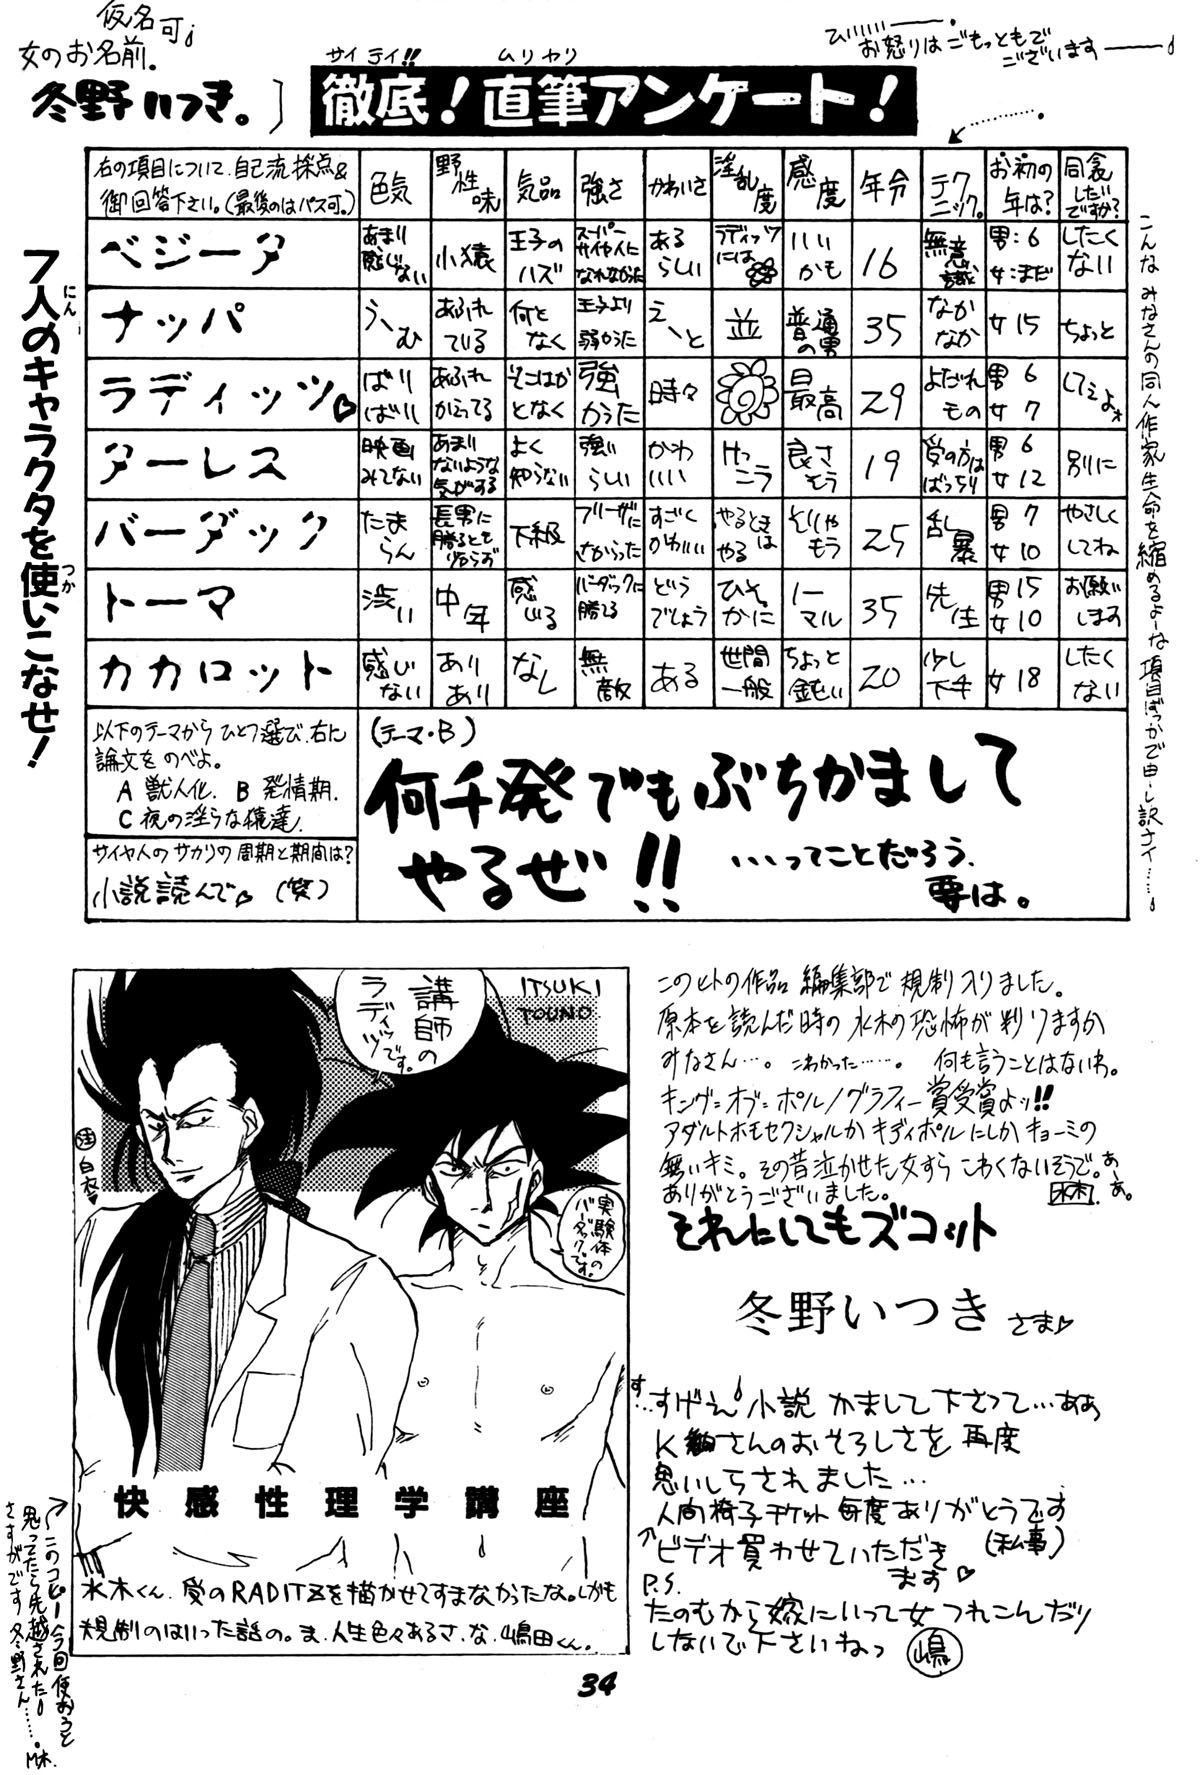 仮名可
女のお名前。
冬野いつき。
サイテイ!! ムリヤリ
徹底!直筆アンケート!
ひいいいい——。
お怒りはごもっともで
ございます——
7人のキャラクタを使いこなせ!
にん
つか
右の項目について、自己流採点&
御回答下さい。(最後のはパス可。)
色気 野性味 気品 強さ かわいさ 淫乱度 感度 年令 テクニック。 お初の年は? 同衾したいですか?
ベジータ あまり感じない 小猿 王子のハズ スーパーサイヤ人になれなかった あるらしい ラディッツには いいかも 16 無意識 男:6 女:まだ したくない
ナッパ うーむ あふれている 何となく 王子より弱かった えーと 並 普通の男 35 なかなか 女15 ちょっと
ラディッツ ばりばり あふれかえってる そこはかとなく 強かった 時々 最高 29 よだれもの 男6 女7 してェよォ
ターレス 映画みてない あまりないような気がする よく知らない 強いらしい かわいい けっこう 良さそう 19 受の方はばっちり 男6 女12 別に
バーダック たまらん 長男に勝るとも劣らず 下級 フリーザにさからった すごくかわいい やるときはやる そりゃもう 25 乱暴 男7 女10 やさしくしてね
トーマ 渋い 中年 感じる バーダックに勝てる どうでしょう ひそかに ノーマル 35 先生 男15 女10 お願いします
カカロット 感じない ありあり なし 無敵 ある 世間一般 ちょっと鈍い 20 少し下手 女18 したくない
こんなみなさんの同人作家生命を縮めるよーな項目ばっかで申し訳ナイ……。
以下のテーマからひとつ選び、右に
論文をのべよ。
A 獣人化. B 発情期.
C 夜の淫らな猿達.
サイヤ人のサカリの周期と期間は?
小説読んで (笑)
(テーマ・B)
何千発でもぶちかまして
やるぜ!!
…ってことだろう.
要は。
ITSUKI
TOUNO
講師の
ラディッツです。
注 白衣
実験体の
バーダックです。
快感性理学講座
水木くん、愛のRADITZを描かせてすまなかったな。しかも
規制のはいった話の。ま、人生色々あるさ、な、嶋田くん。
このコピー今回使おうと
思ってたら先越された
さすがです冬野さん……。M木.
このヒトの作品 編集部で規制入りました。
原本を読んだ時の水木の恐怖が判りますか
みなさん…。こわかった……。何も言うことはないわ。
キング=オブ=ポルノグラフィー賞受賞よッ!!
アダルトホモセクシャルかキディポルにしかキョーミの
無いキミ。その昔泣かせた女すらこわくないそうで。あーあ。
ありがとうございました。 水木
それにしてもズコット
冬野いつき さま
す…すげえ小説かまして下さって…ああ
Kさんのおそろしさを再度
思いしらされました…
人間椅子チケット毎度ありがとうです
(私事)
ビデオ買わせていただき
ます
P.S.
たのむから嫁にいって女つれこんだり
しないで下さいねっ 嶋
34